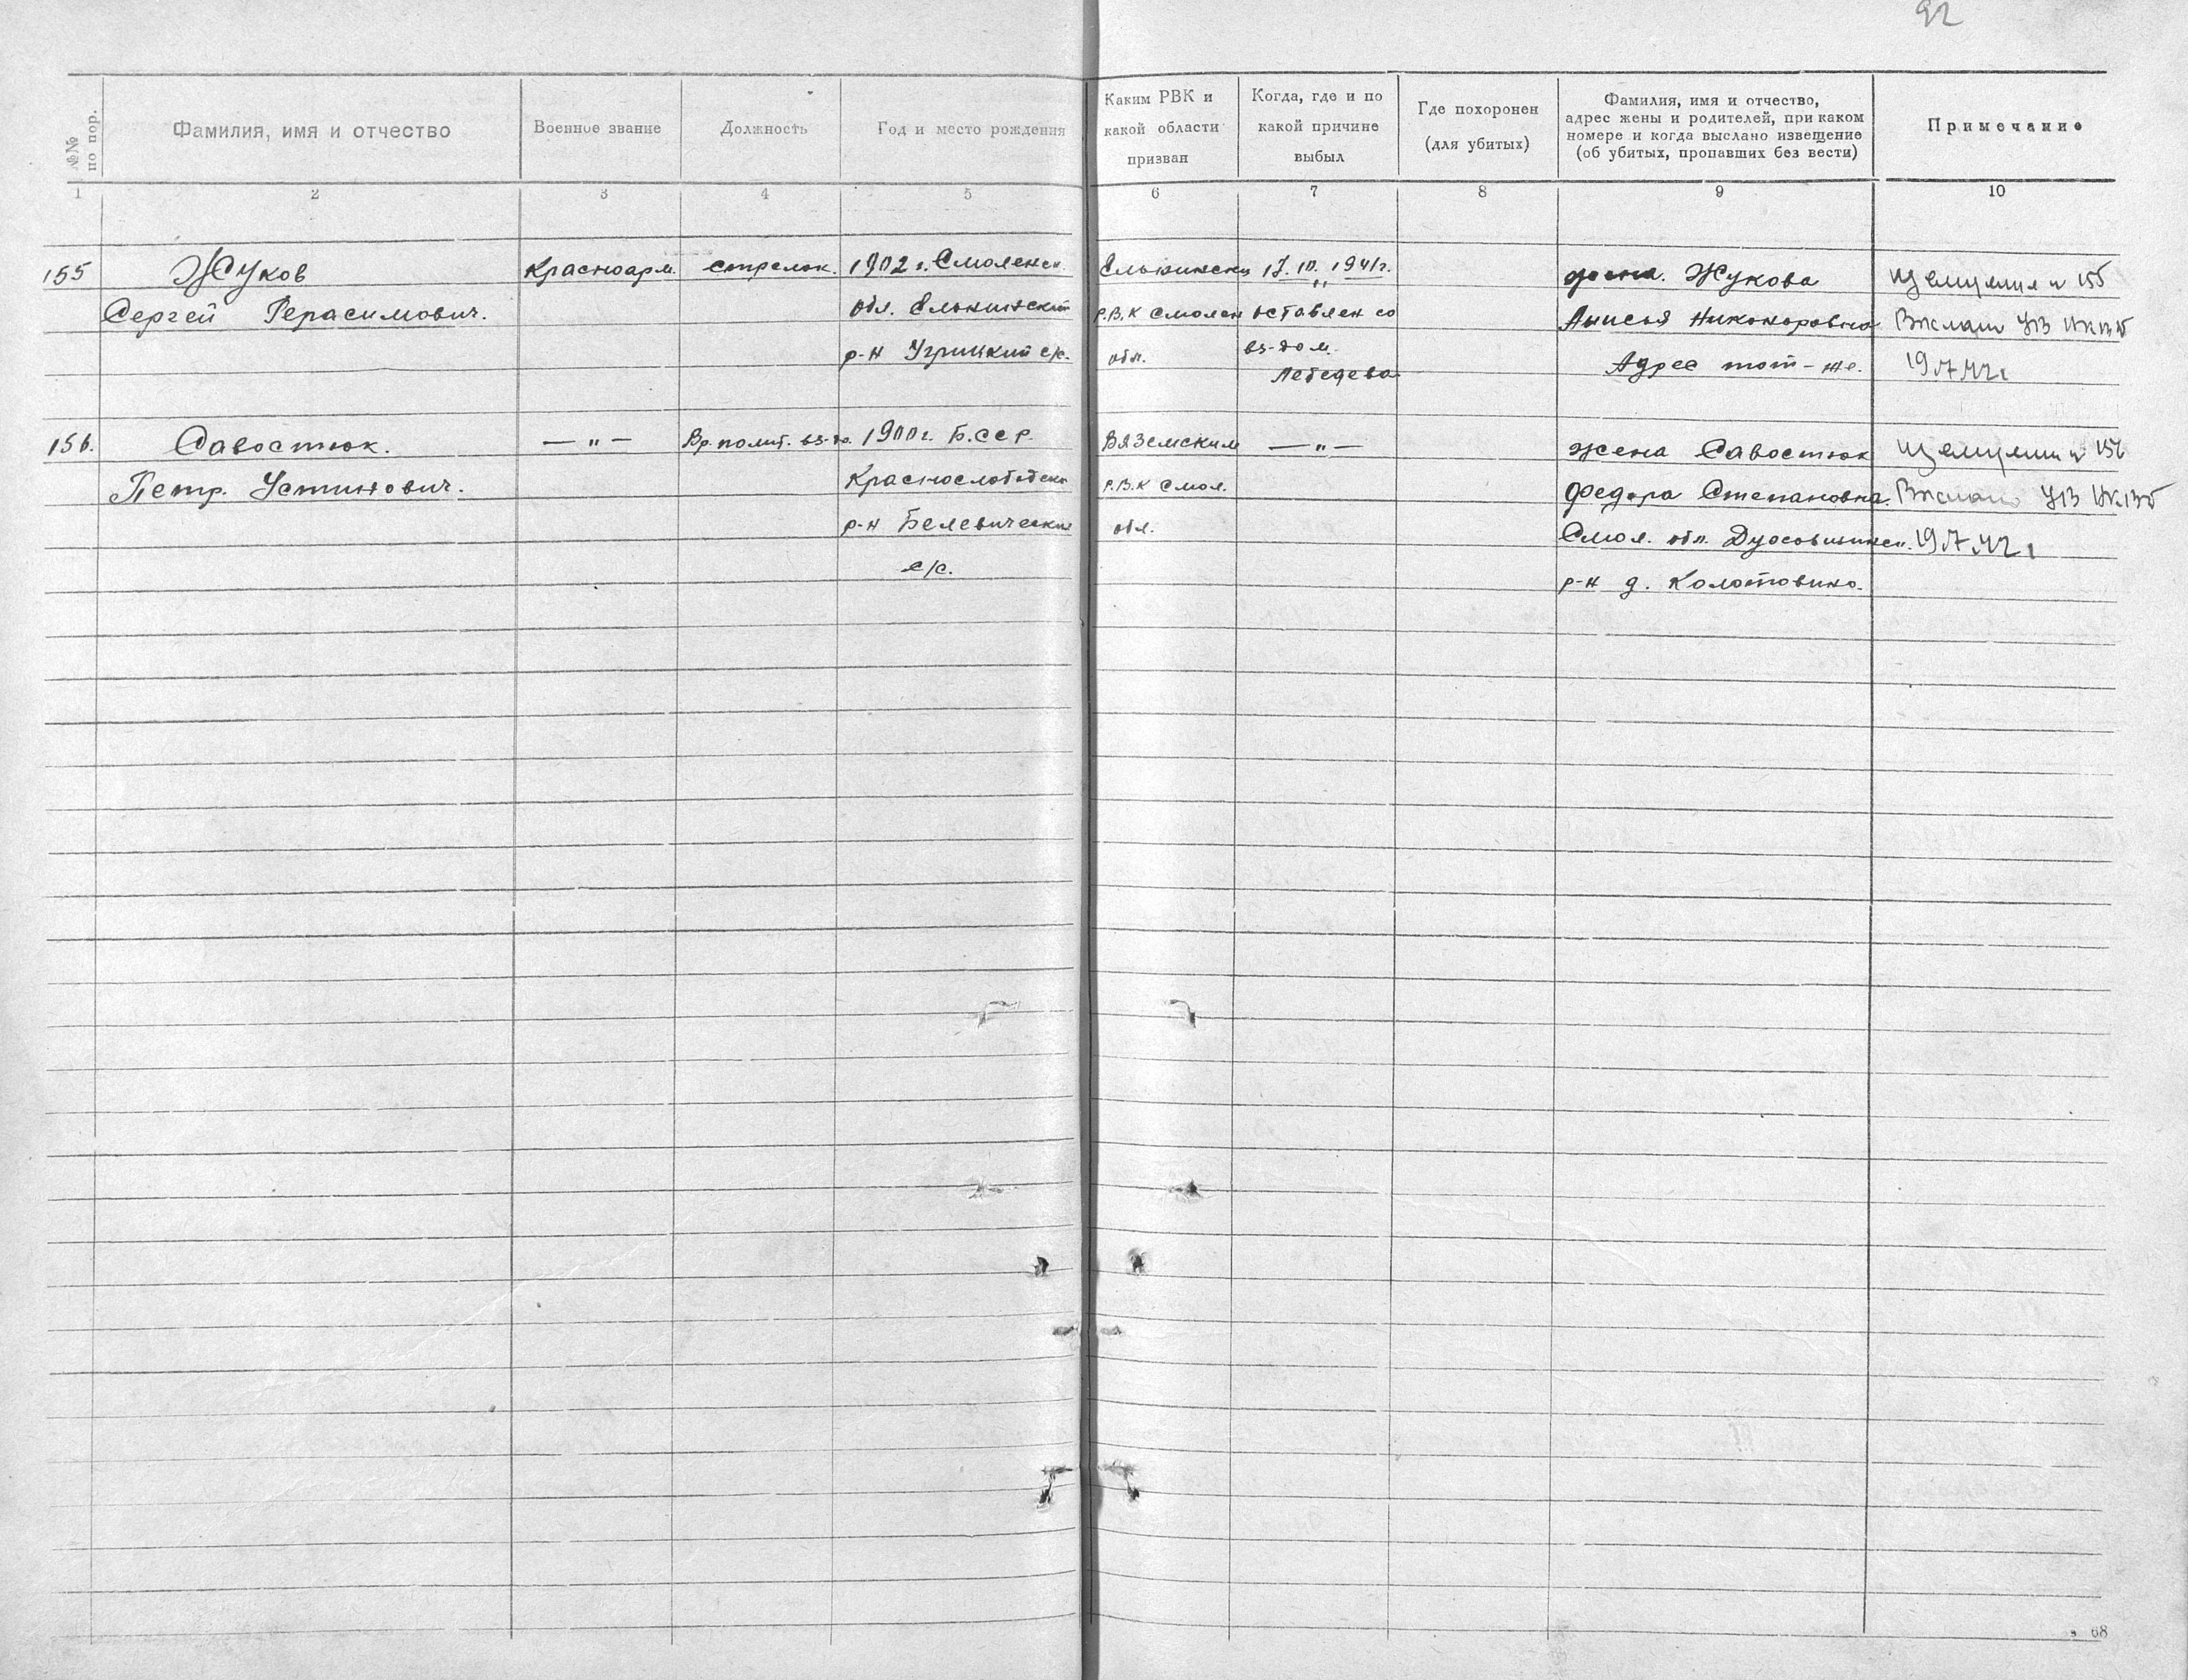 92
№№ по пор.
Фамилия, имя и отчество
Военное звание
Должность
Год и место рождения
Каким РВК и
какой области
призван
Когда, где и по
какой причине
выбыл
Где похоронен
(для убитых)
Фамилия, имя и отчество,
адрес жены и родителей, при каком
номере и когда выслано извещение
(об убитых, пропавших без вести)
Примечание
1 2 3 4 5 6 7 8 9 10
155 Жуков Красноарм. стрелок. 1902 г. Смоленск. 17.10.1941г. жена. Жукова 155
Сергей Герасимович. обл. Р.В.К Смолен оставлен со Анисья Никоноровна
р-н Угрицкий с/с. обл. вз-дом. Адрес тот-же. 19.7.42г
Лебедева
156. Савостюк. — " — Вр. полит. вз-да. 1900г. Б.ССР. Вяземским — " — жена Савостюк 156
Петр. Устинович. Краснослободск Р.В.К Смол. Федора Степановна.
р-н Белевический обл. Смол. обл. 19.7.42г
с/с. р-н д. Колотовино.
68